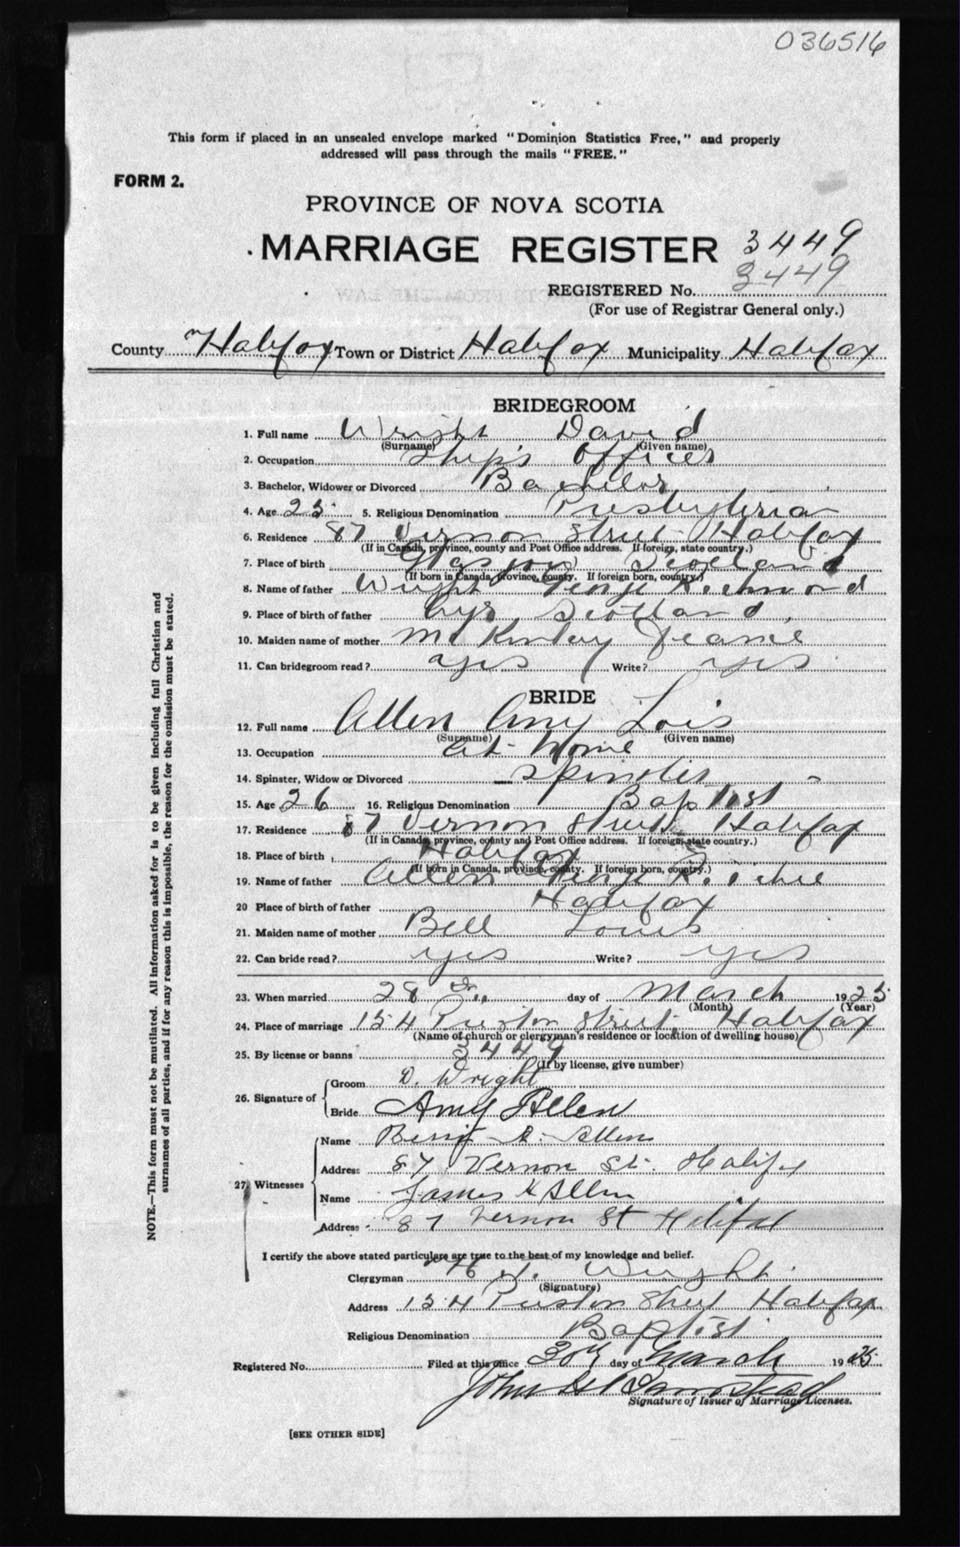 036516
This form if placed in an unsealed envelope marked "Dominion Statistics Free," and properly
addressed will pass through the mails "FREE."
FORM 2.
PROVINCE OF NOVA SCOTIA
MARRIAGE REGISTER 3449
REGISTERED No. 3449
(For use of Registrar General only.)
County Halifax Town or District Halifax Municipality Halifax
BRIDEGROOM
1. Full name Wright David
(Surname) (Given name)
2. Occupation Ship's Officer
3. Bachelor, Widower or Divorced Bachelor
4. Age 25 5. Religious Denomination Presbyterian
6. Residence 87 Vernon Street Halifax
(If in Canada, province, county and Post Office address. If foreign, state country.)
7. Place of birth Glasgow Scotland
(If born in Canada, province, county. If foreign born, country.)
8. Name of father Wright George Richmond
9. Place of birth of father Ayr Scotland
10. Maiden name of mother McKinlay Jeanie
11. Can bridegroom read? yes Write? yes
BRIDE
12. Full name Allen Amy Lois
(Surname) (Given name)
13. Occupation at Home
14. Spinster, Widow or Divorced Spinster
15. Age 26 16. Religious Denomination Baptist
17. Residence 87 Vernon Street Halifax
(If in Canada, province, county and Post Office address. If foreign, state country.)
18. Place of birth Halifax
(If born in Canada, province, county. If foreign born, country.)
19. Name of father Allen George
20 Place of birth of father Halifax
21. Maiden name of mother Bell Louis
22. Can bride read? yes Write? yes
23. When married 28 day of March 1925
(Month) (Year)
24. Place of marriage 154 Preston Street Halifax
(Name of church or clergyman's residence or location of dwelling house)
25. By license or banns 3449
(If by license, give number)
26. Signature of Groom D. Wright
Bride Amy Allen
27. Witnesses Name A. Allen
Address 87 Vernon St. Halifax
Name James H Allen
Address 87 Vernon St Halifax
I certify the above stated particulars are true to the best of my knowledge and belief.
Clergyman Wright
(Signature)
Address 154 Preston Street Halifax
Religious Denomination Baptist
Registered No. Filed at this office 30th day of March 1925
John
Signature of Issuer of Marriage Licenses.
[SEE OTHER SIDE]
NOTE.—This form must not be mutilated. All information asked for is to be given including full Christian and
surnames of all parties, and if for any reason this is impossible, the reason for the omission must be stated.